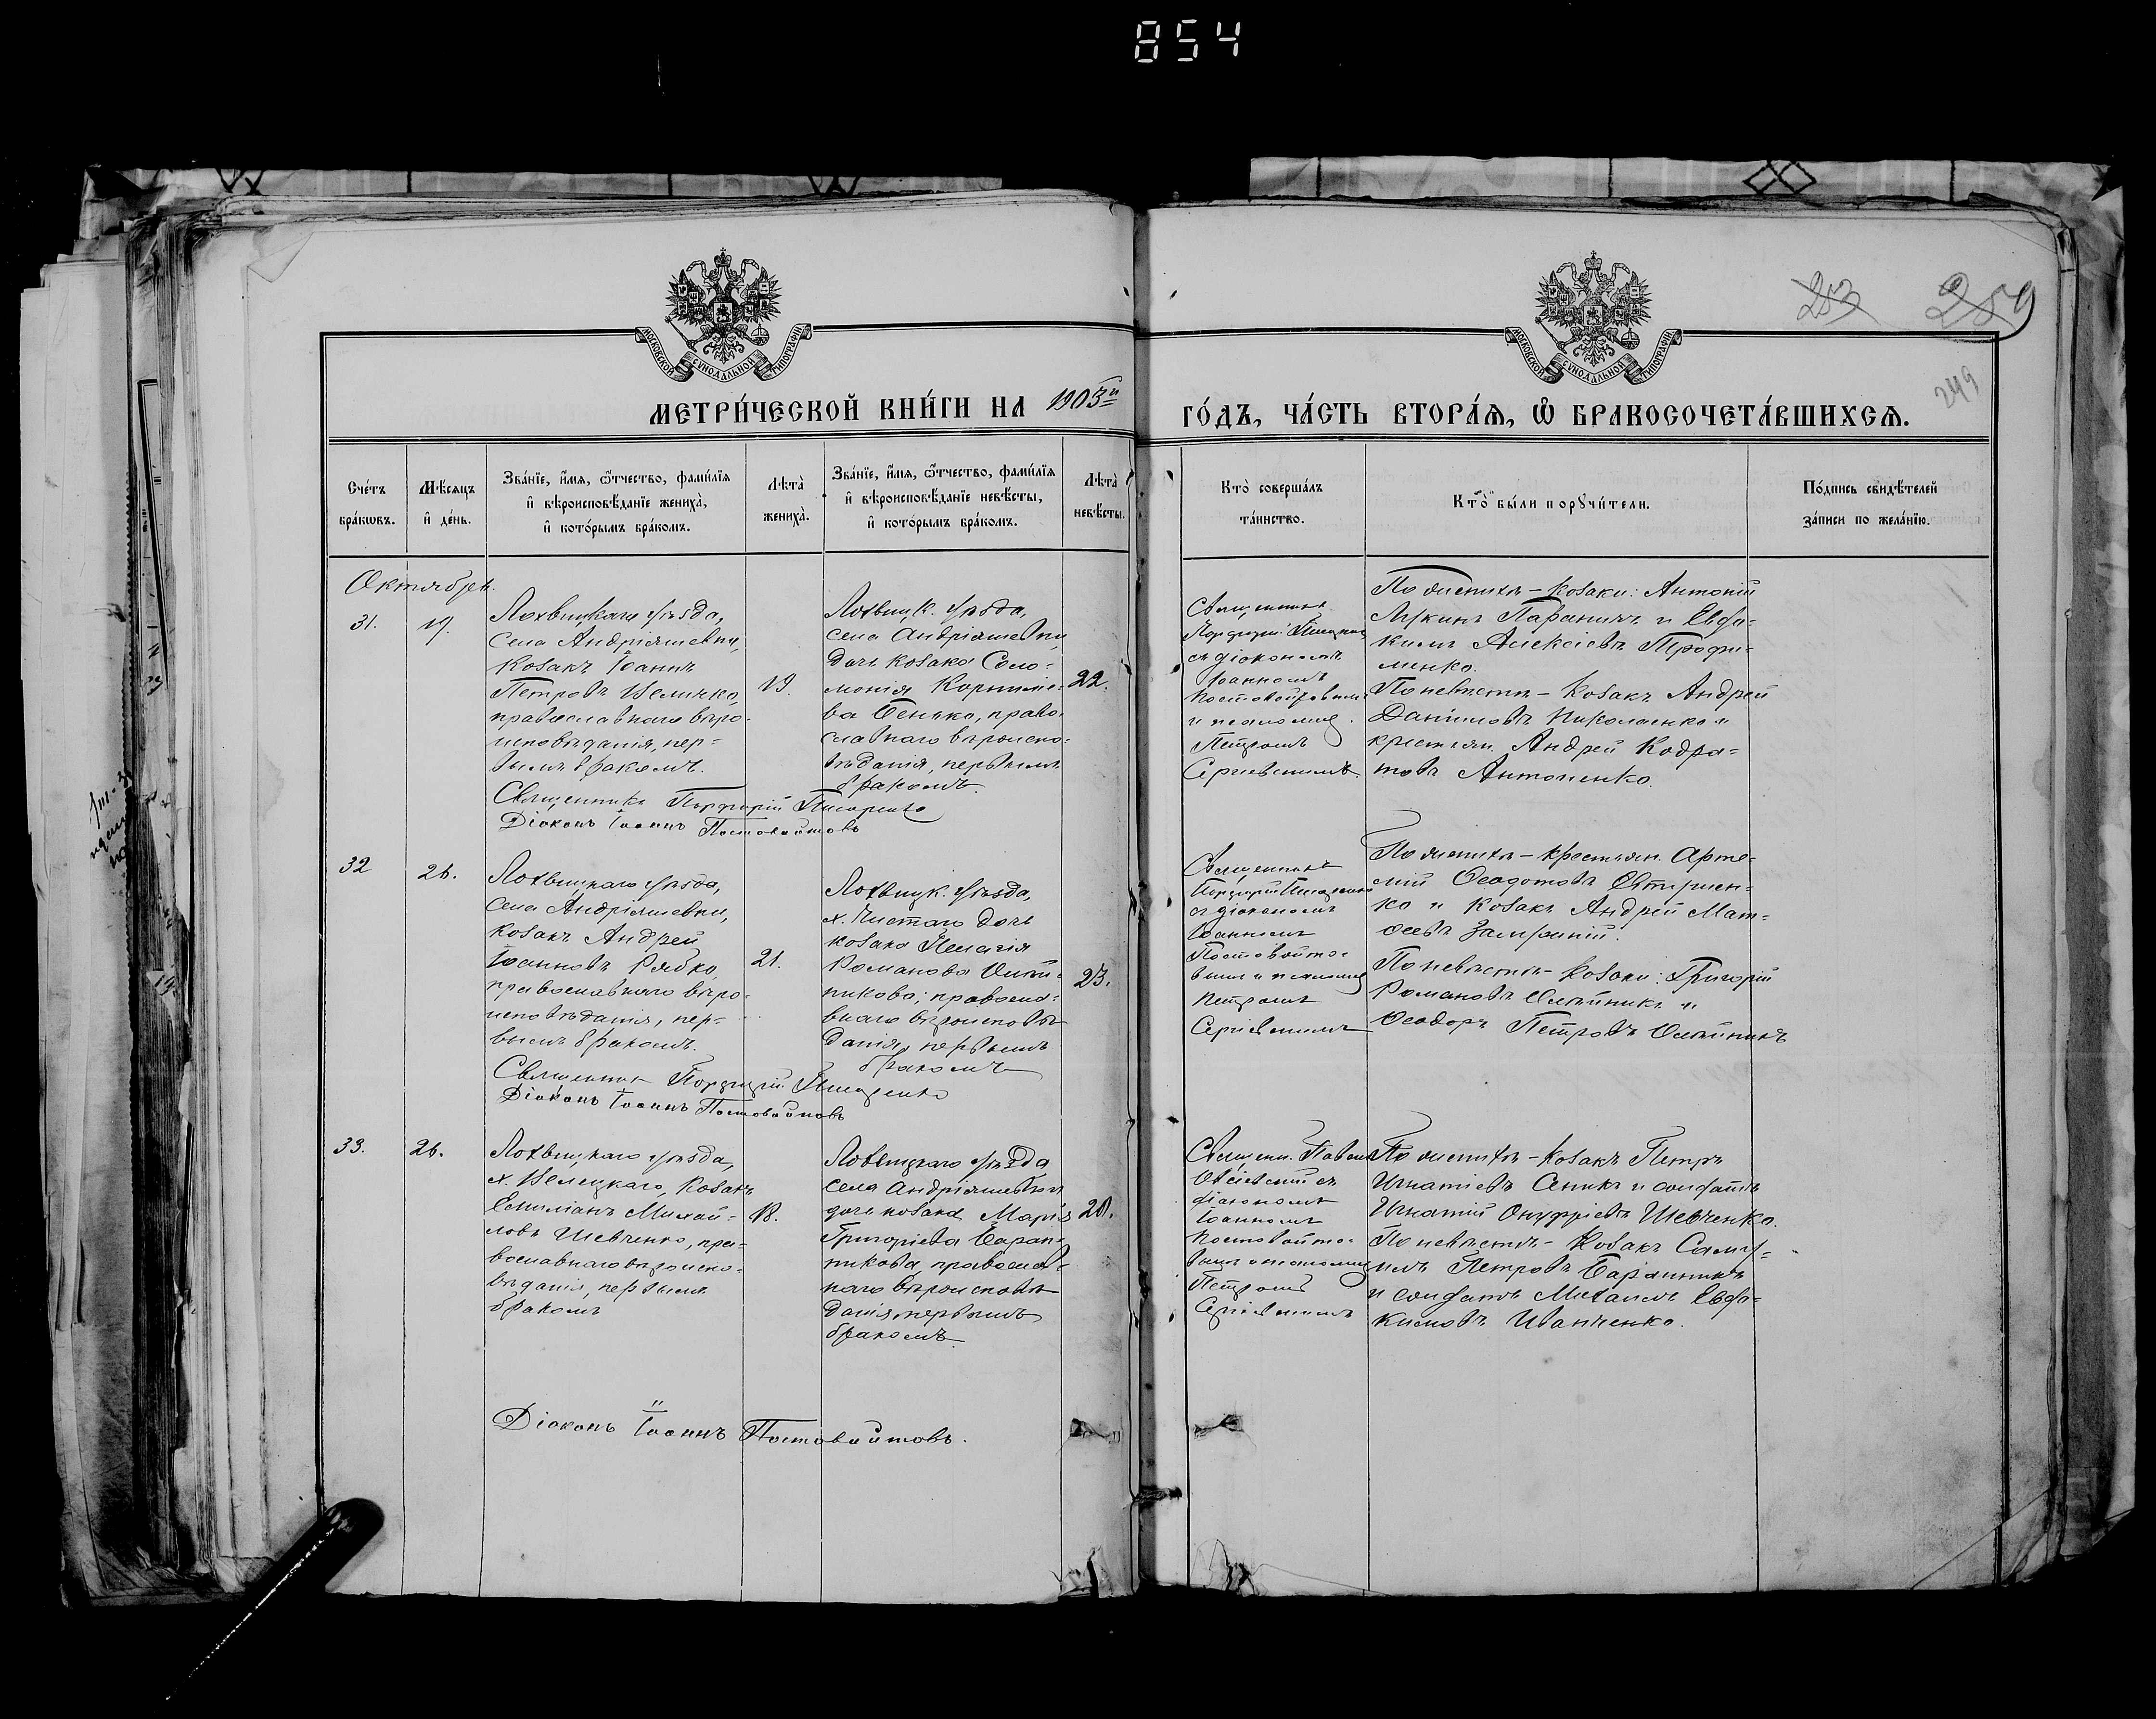 854
МОСКОВСКОЙ СѴНОДАЛЬНОЙ ТИПОГРАФІИ
МОСКОВСКОЙ СѴНОДАЛЬНОЙ ТИПОГРАФІИ
253 259
249
МЕТРИ́ЧЕСКОЙ КНИ́ГИ НА 1903й ГО́ДЪ, ЧА́СТЬ ВТОРА́Я, Ѡ҆ БРАКОСОЧЕТА́ВШИХСЯ.
Сче́тъ
бра́кѡвъ.
Мѣ́сяцъ
и҆ де́нь.
Зва́нїе, и҆́мя, ѻ҆́тчество, фами́лїя
и҆ вѣроисповѣ́данїе жениха̀,
и҆ кото́рымъ бра́комъ.
Лѣта̀
жениха̀.
Зва́нїе, и҆́мя, ѻ҆́тчество, фами́лїя
и҆ вѣроисповѣ́данїе невѣ́сты,
и҆ кото́рымъ бра́комъ.
Лѣта̀
невѣ́сты.
Кто̀ соверша́лъ
та́инство.
Кто̀ бы́ли порꙋчи́тели.
По́дпись свидѣ́телей
за́писи по жела́нїю.
Октябрь.
31.
19.
Лохвицкаго уѣзда,
села Андріяшевки,
козакъ Іоаннъ
Петровъ Величко,
православнаго вѣро-
исповѣданія, пер-
вымъ бракомъ.
19.
Лохвицк. уѣзда,
села Андріяшевки,
дочь козака Соло-
монія Корнилie-
ва Сенько, право-
славнаго вѣроиспо-
вѣданія, первымъ
бракомъ.
22.
Священникъ
Порфирій Писаренко
съ діакономъ
Іоанномъ
Постовойтовымъ
и псаломщ.
Петромъ
Сергіевскимъ
По женихѣ – козаки: Антоній
Лукинъ Таранъ и Евдо-
кимъ Алексіевъ Трофи-
менко.
По невѣстѣ – козакъ Андрей
Даніиловъ Николаенко и
крестьян. Андрей Кодра-
товъ Антоненко.
Священникъ Порфирій Писаренко
Діаконъ Іоаннъ Постовойтовъ
32
26.
Лохвицкаго уѣзда,
села Андріяшевки,
козакъ Андрей
Іоанновъ Рябко,
православнаго вѣро-
исповѣданія, пер-
вымъ бракомъ.
21.
Лохвицк. уѣзда,
х. Чистаго дочь
козака Пелагія
Романова Олѣй-
никова; православ-
внаго вѣроисповѣ
данія, первымъ
бракомъ
23.
Священникъ
Порфирій Писаренко
съ діакономъ
Іоанномъ
Постовойто-
вымъ и псаломщ
Петромъ
Сергіевскимъ
По женихѣ – крестьян. Арте-
мій Ѳеодотовъ
ко и козакъ Андрей Мат-
ѳеевъ Замрыкій.
По невѣстѣ – козаки: Григорій
Романовъ Олѣйникъ и
Ѳеодоръ Петровъ Олѣйникъ
Священникъ Порфирій Писаренко
Діаконъ Іоаннъ Постовойтовъ
33.
26.
Лохвицкаго уѣзда,
х. Белецкаго, козакъ
Емиліанъ Михай-
ловъ Шевченко, пра-
вославнаго вѣроиспо-
вѣданія, первымъ
бракомъ
18.
Лохвицкаго уѣзда
села Андріяшевки
дочь козака Марія
Григоріева Баран-
никова, православ-
наго вѣроисповѣ
данія, первымъ
бракомъ.
20.
Священн. Павелъ
съ
діакономъ
Іоанномъ
Постовойто-
вымъ и псаломщ
Петромъ
Сергіевскимъ
По женихѣ – козакъ Петръ
Игнатіевъ Сеникъ и солдатъ
Игнатій Онуфріевъ Шевченко.
По невѣстѣ – козакъ Саму-
илъ Петровъ Баранникъ
и солдатъ Михаилъ Евдо-
кимовъ Иванченко.
Діаконъ Іоаннъ Постовойтовъ.